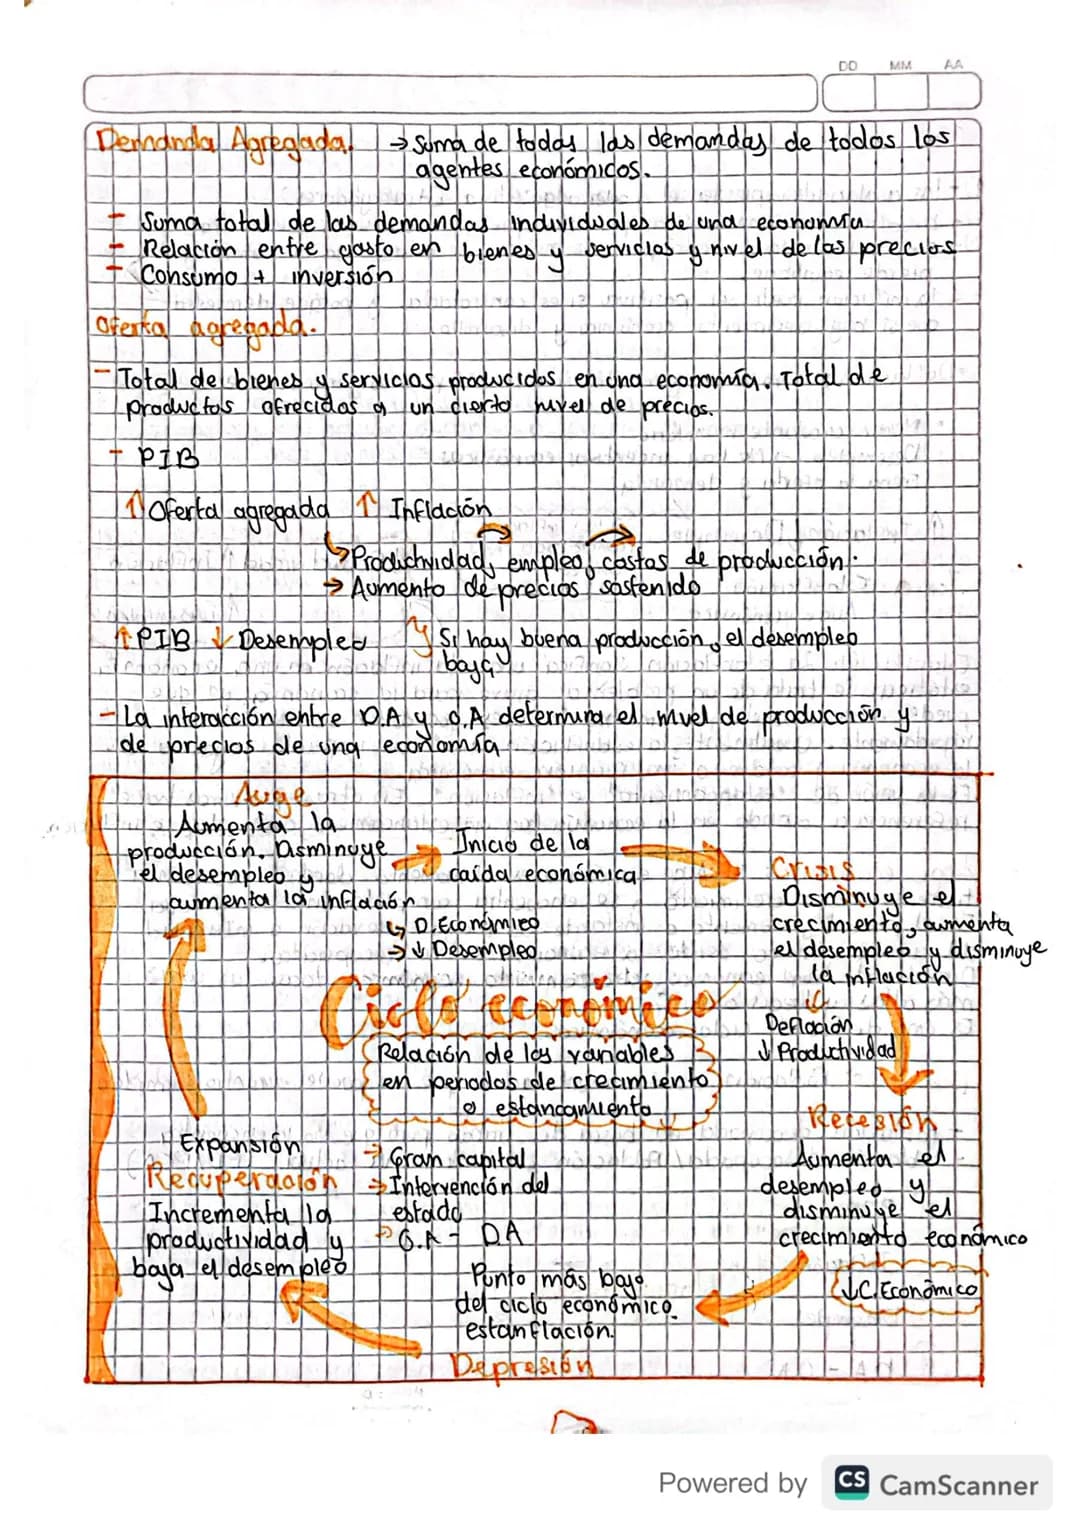 DD MM AA
Demanda Agregada. → Suma de todas las demandas de todos los
agentes económicos.
- Suma total de las demandas individuales de una economía
- Relación entre gasto en bienes y servicios y nivel de los precios
- Consumo + inversión
Oferta agregada.
- Total de bienes y servicios producidos en una economía. Total de
productos ofrecidos a un cierto nivel de precios.
- PIB
↑ Oferta agregada ↑ Inflación
↳ Productividad, empleo, costos de producción.
→ Aumento de precios sostenido
↑ PIB ↓ Desempleo
Si hay buena producción, el desempleo
baja
- La interacción entre D.A y O.A determina el nivel de producción y
de precios de una economía
Auge
Aumenta la
producción. Disminuye
el desempleo y
aumenta la inflación
→ Inicio de la
caída económica
↳ D.Económico
→ ↓ Desempleo
Crisis
Disminuye el
crecimiento, aumenta
el desempleo y disminuye
la inflación
Deflación
↓ Productividad
Ciclo económico
Relación de las variables
en periodos de crecimiento
o estancamiento
Recesión
Aumenta el
desempleo y
disminuye el
crecimiento económico
↓C.Económico
Expansión
Recuperación
Incrementa la
productividad y
baja el desempleo
→ Gran capital
→ Intervención del
estado
→ O.A - DA
Punto más bajo
del ciclo económico.
estanflación.
Depresión
Powered by CS CamScanner